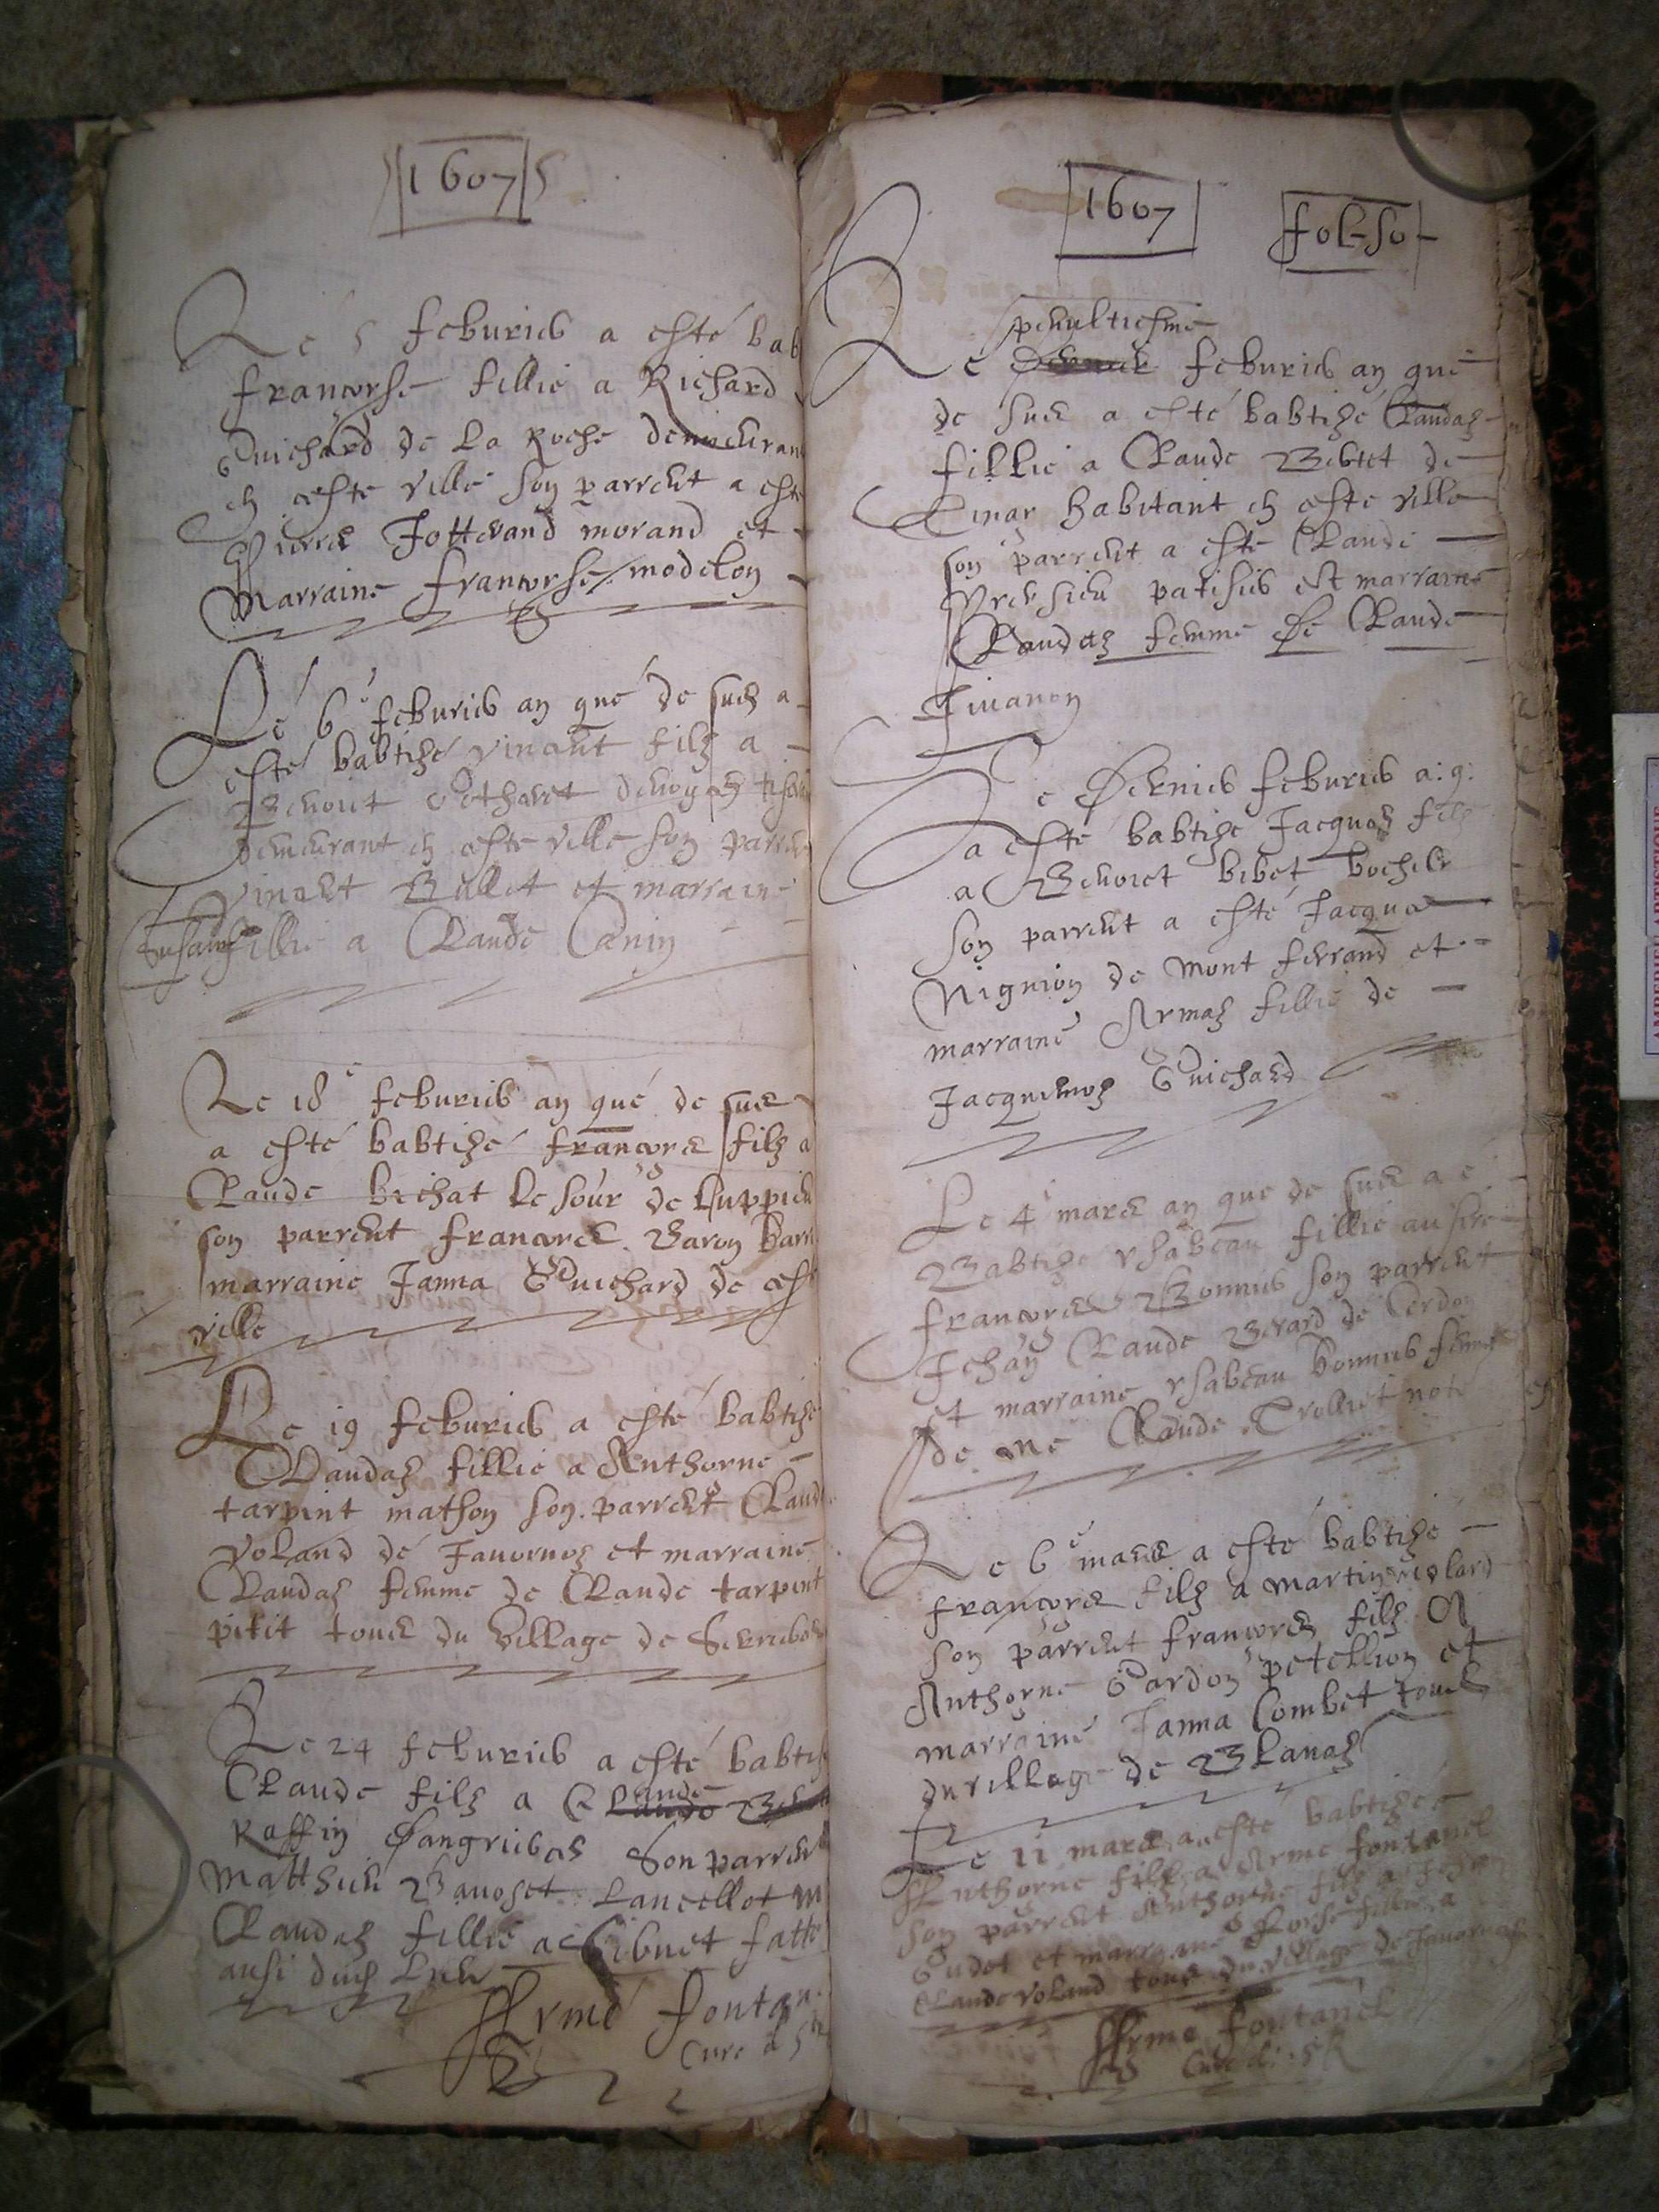 1607
Le 5 feburier a esté bab
francoyse fillie a Richard
Guichard de La Roche demeurant
en ceste ville son parrent a esté
Pierre Jotterand morand et
Marraine francoyse modelon
Le 6e feburier an que de sus a
esté babtizé vincent filz a
Benoict
demeurant en ceste ville son parrent
vincent Bullet et marraine
Susanne fillie a Claude
Le 18e feburier an que de sus
a esté babtizé francoys filz a
Claude brechat le sour de Luppieu
son parrent francoys Baron
marraine Janna Guichard de ceste
ville
Le 19 feburier a esté babtizé
Claudaz fillie a Anthoyne
tarpint mathon son parrent Claude
Voland de Jauornoz et marraine
Claudaz femme de Claude tarpint
petit tous du village de
Le 24 feburier a esté babtizé
Claude filz a Claude
Raffin Son parrent
Matthieu Bauoset Lancellot
Claudaz fillie a Gibuet
ausi dud Lieu
Ayme fontan
Cure
1607
fol-50
penultiesme
Le feburier an que
de sus a esté babtizé Claudaz
fillie a Claude Bertet de
habitant en ceste ville
son parrent a esté Claude
patisier et marraine
Claudaz femme de Claude
Juuanon
Le dernier feburier a: q:
a esté babtizé Jacques filz
a Benoict bibet bochier
son parrent a esté Jacques
Nignion de mont ferrand et
marraine Aymaz fillie de
Jacquemoz Guichard
Le 4e mars an que de sus a e
Babtizé ysabeau fillie au sire
francoys Bonnier son parrent
Jehan Claude Berard de Cerdon
et marraine ysabeau bonnier femme
de me Claude Trolliet note
Le 6e mars a esté babtizé
francoys filz a martin
son parrent francoys filz A
Anthoyne Gardon petellion et
marraine Janna Combet tous
du village de Blanaz
Le 11 mars a esté babtizé
Anthoyne filz a Ayme fontanel
son parrent Anthoyne filz a
Gudet et marrayne fillie a
Claude voland tous du village de Jauornoz
Ayme fontanel
Cure